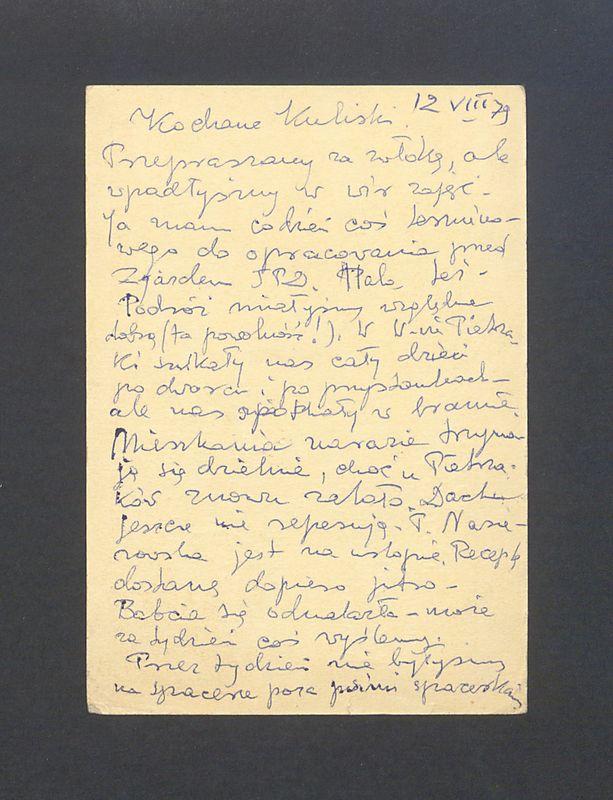 12 VIII 79
Kochane Kuliski.
Przepraszamy za zwłokę, ale
wpadłyśmy w wir zajęć.
Ja mam codzień coś termino-
wego do opracowania przed
Zjazdem Mała też.
Podróż miałyśmy względnie
dobrą (ta powolność!). W W-wie Pietrza-
ki szukały nas cały dzień
po dworcu i po przystankach
ale nas spotkały w bramie.
Mieszkania narazie trzyma-
ją się dzielnie, choć u Pietrza-
ków znowu zalało. Dachu
jeszcze nie reperują. P. Nasie-
rowska jest na urlopie. Receptę
dostanę dopiero jutro.
Babcia się odnalazła - może
za tydzień coś wyślemy.
Przez tydzień nie byłyśmy
na spacerze poza spacerkami